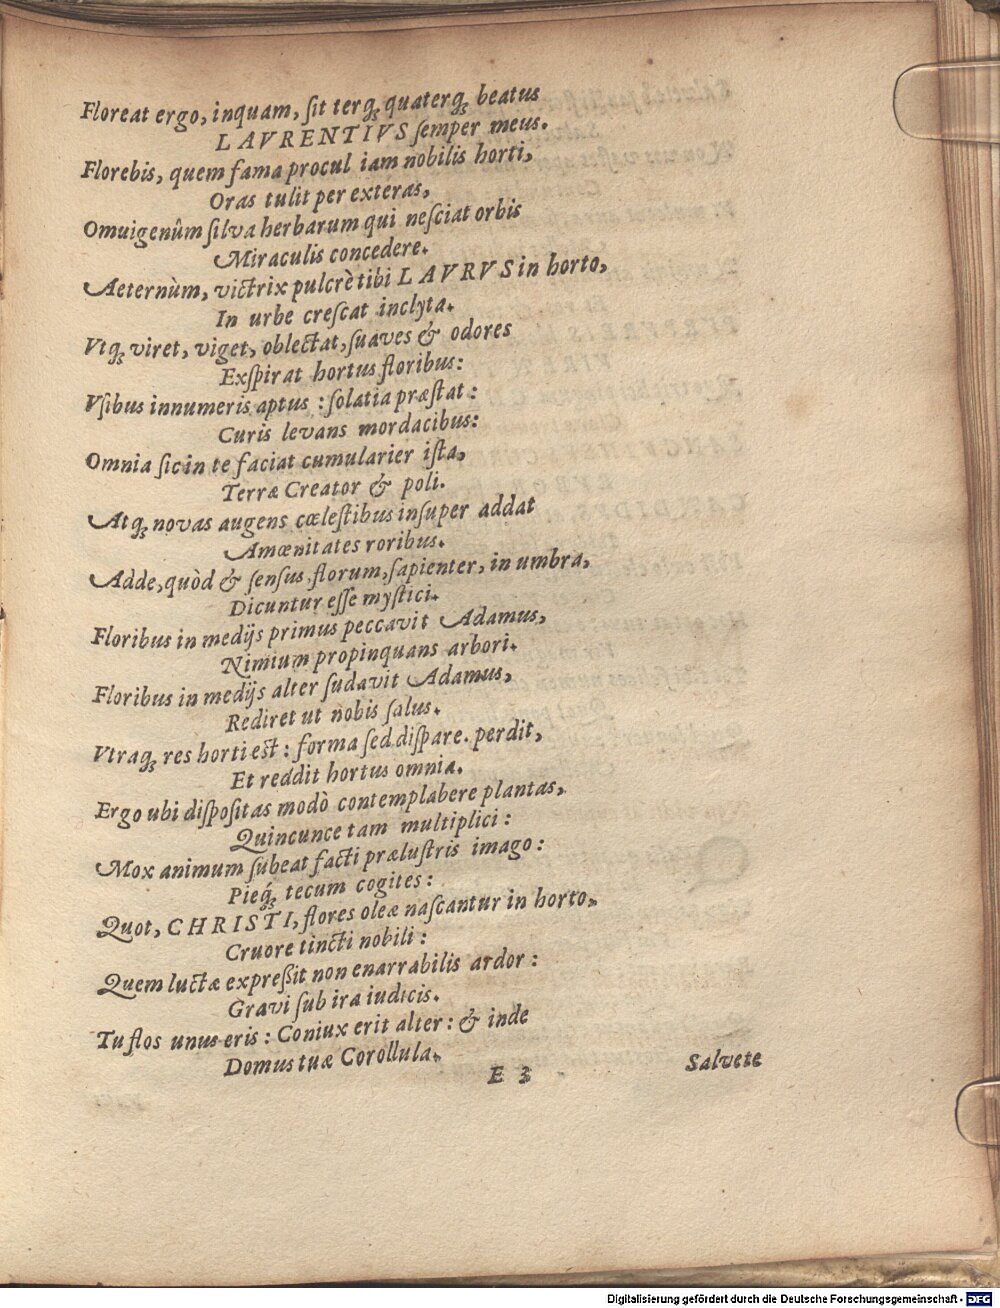 Floreat ergo, inquam, ſit terq́ꝫ quaterq́ꝫ beatus
LAVRENTIVS ſemper meus.
Florebis, quem fama procul iam nobilis horti,
Oras tulit per exteras,
Omuigenûm ſilva herbarum qui neſciat orbis
Miraculis concedere.
Aeternùm, victrix pulcrè tibi LAVRVS in horto,
In urbe creſcat inclyta.
Vtqꝫ viret, viget, oblectat, ſuaves & odores
Exſpirat hortus floribus:
Vſibus innumeris aptus : ſolatia præſtat :
Curis levans mordacibus:
Omnia ſic in te faciat cumularier iſta,
Terræ Creator & poli.
Atqꝫ novas augens cœleſtibus inſuper addat
Amœnitates roribus.
Adde, quòd & ſenſus, florum, ſapienter, in umbra,
Dicuntur eſſe myſtici.
Floribus in medijs primus peccavit Adamus,
Nimium propinquans arbori.
Floribus in medijs alter ſudavit Adamus,
Rediret ut nobis ſalus.
Vtraqꝫ res horti est : forma ſed diſpare. perdit,
Et reddit hortus omnia.
Ergo ubi diſpoſitas modò contemplabere plantas,
Quincunce tam multiplici :
Mox animum ſubeat facti præluſtris imago :
Pieq́ꝫ tecum cogites :
Quot, CHRISTI, flores oleæ naſcantur in horto,
Cruore tincti nobili :
Quem luctæ expreßit non enarrabilis ardor :
Gravi ſub ira iudicis.
Tu flos unus eris : Coniux erit alter : & inde
Domus tuæ Corollula.
E 3
Salvete
Digitalisierung gefördert durch die Deutsche Forschungsgemeinschaft - DFG